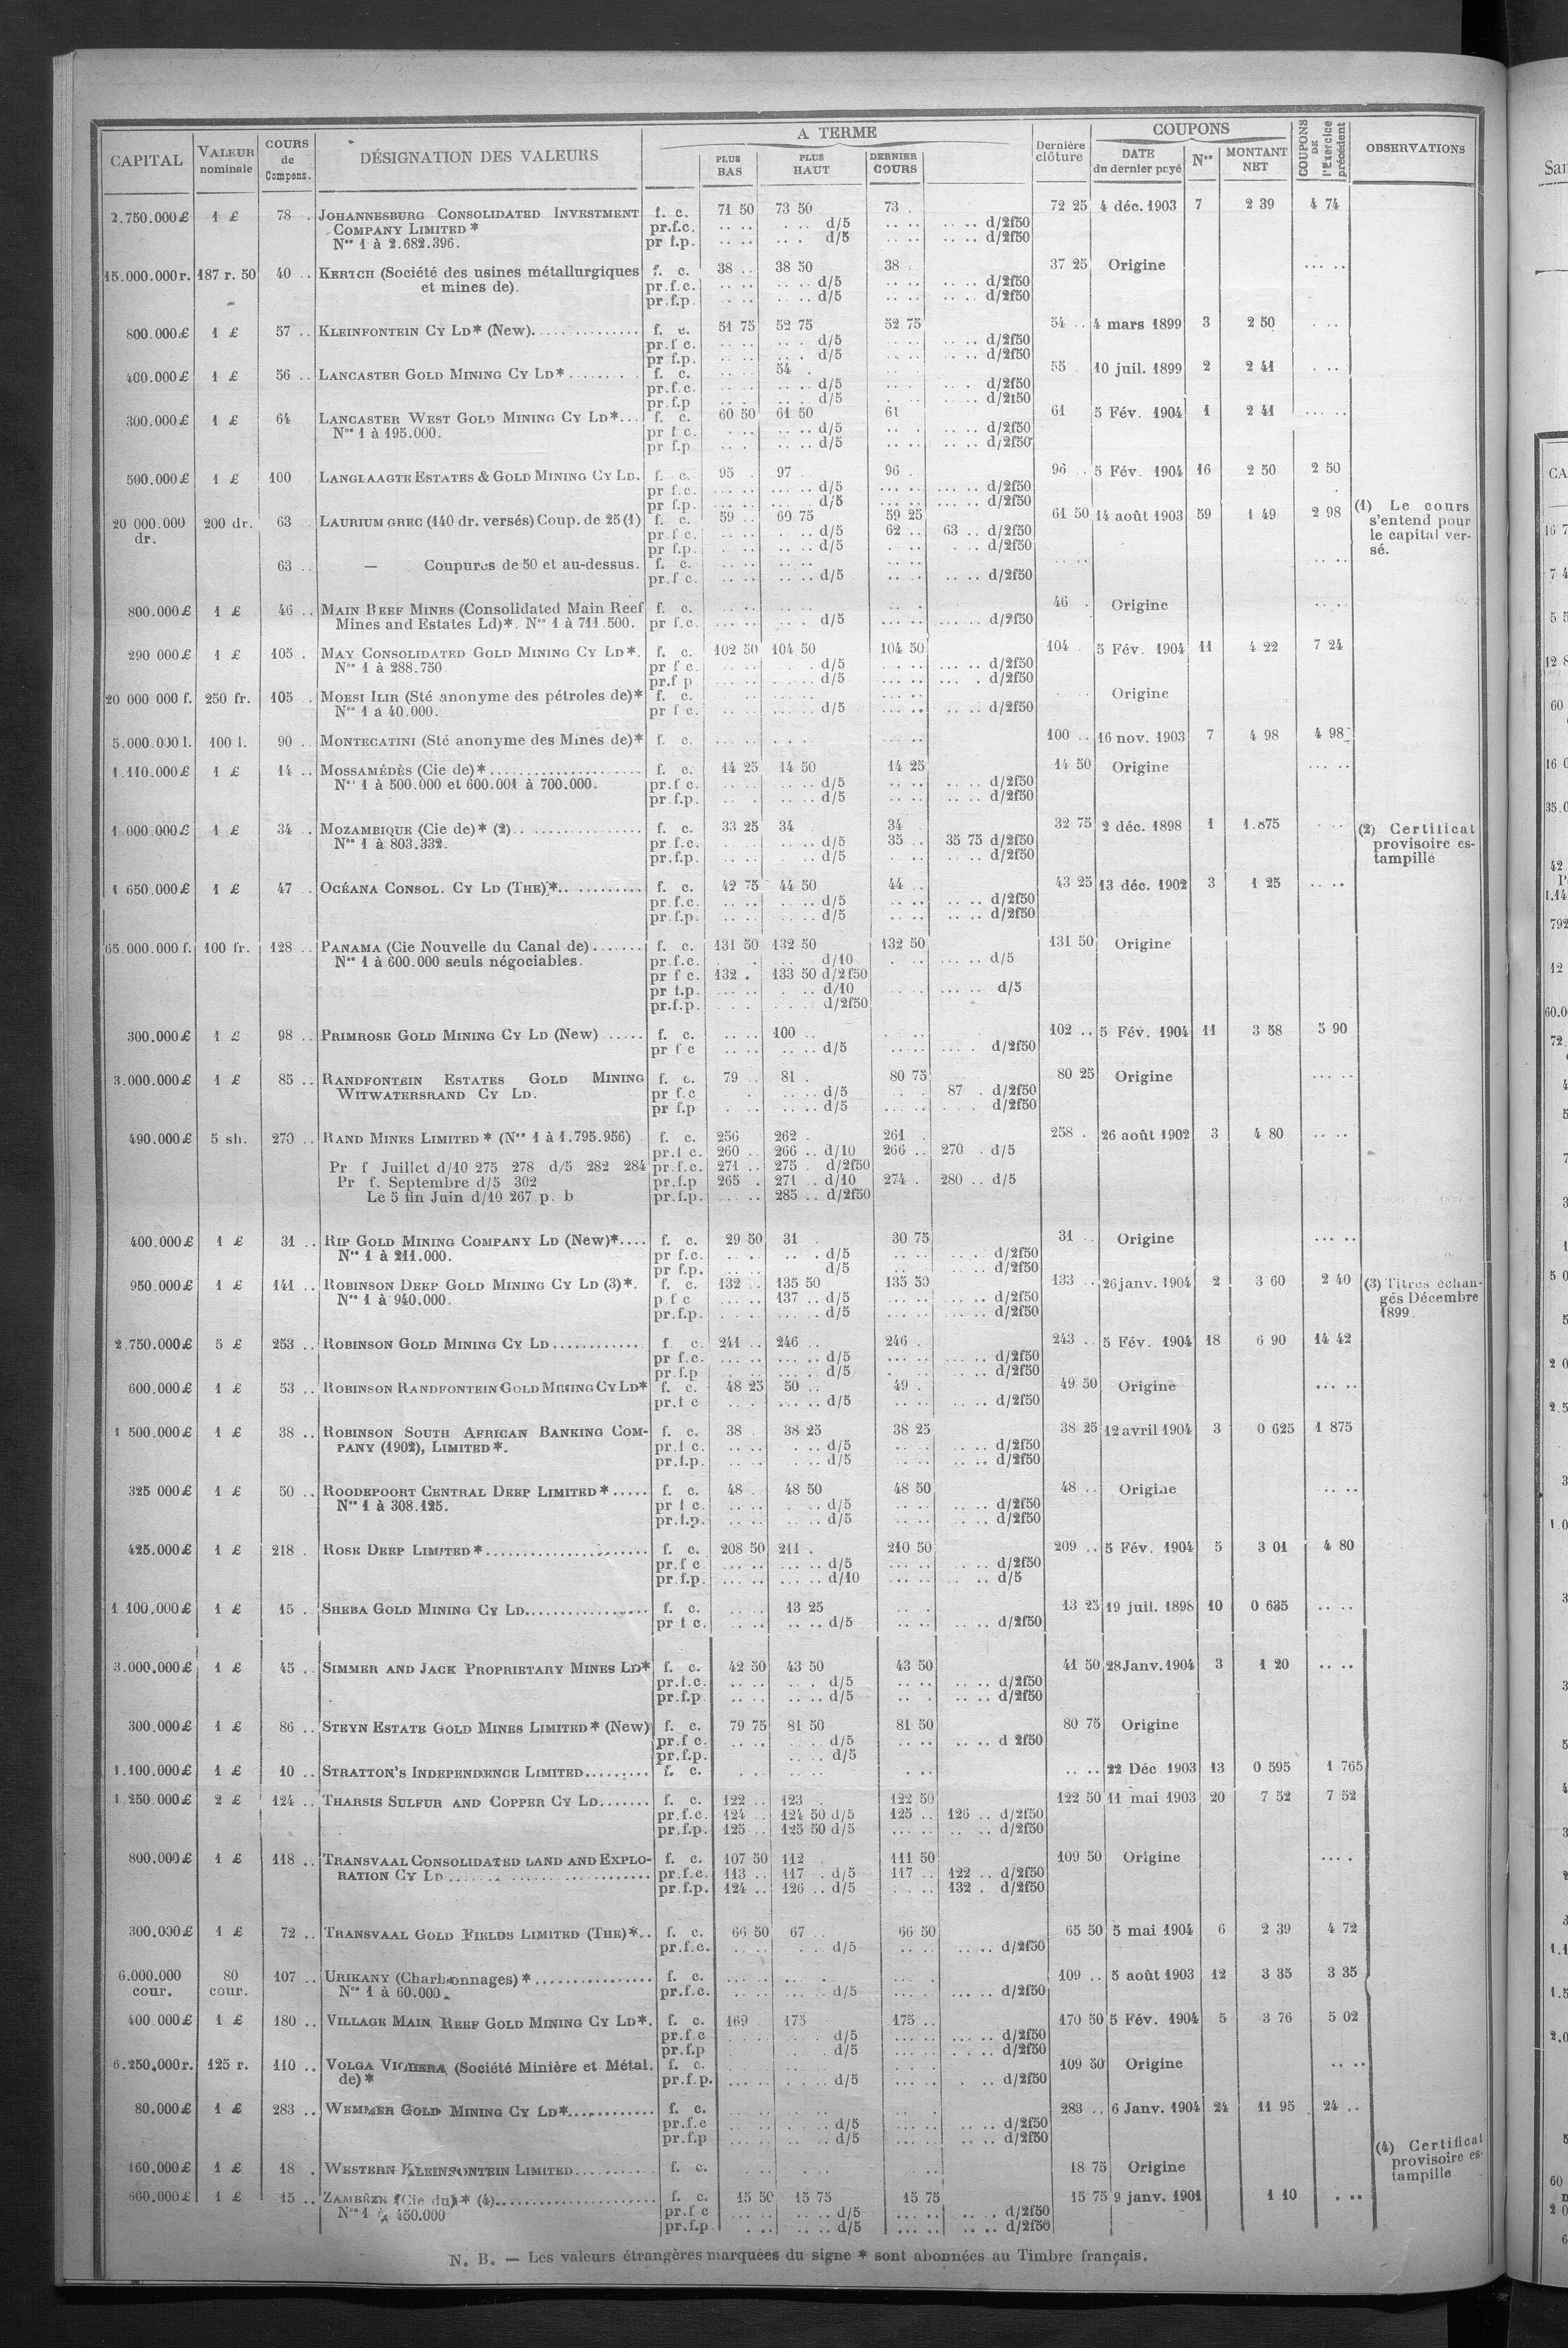 CAPITAL VALEUR nominale COURS de Compens. DÉSIGNATION DES VALEURS A TERME PLUS BAS PLUS HAUT DERNIER COURS Dernière clôture COUPONS DATE du dernier payé Nos MONTANT NET COUPONS DE l'Exercice précédent OBSERVATIONS
2.750.000£ 1 £ 78 . JOHANNESBURG CONSOLIDATED INVESTMENT f. c. 71 50 73 50 73 . 72 25 4 déc. 1903 7 2 39 4 74
COMPANY LIMITED * pr.f.c. .. .. d/5 .. .. .. .. d/2f50
Nos 1 à 2.682.396. pr f.p. .. .. d/5 .. .. .. .. d/2f50
15.000.000r. 187 r. 50 40 .. KERTCH (Société des usines métallurgiques f. c. 38 .. 38 50 38 . 37 25 Origine ... ..
et mines de). pr.f.c. .. .. .. .. d/5 .. .. .. .. d/2f50
pr.f.p. .. .. .. .. d/5 .. .. .. .. d/2f50
800.000£ 1 £ 57 .. KLEINFONTEIN CY LD* (New). f. c. 51 75 52 75 52 75 54 .. 4 mars 1899 3 2 50 . ..
pr.f c. .. .. d/5 .. .. d/2f50
pr f.p. .. .. d/5 .. .. d/2f50
400.000£ 1 £ 56 .. LANCASTER GOLD MINING CY LD* f. c. 54 . 55 10 juil. 1899 2 2 41 . ..
pr.f.c. .. .. d/5 d/2f50
pr.f.p .. .. d/5 d/2f50
300.000£ 1 £ 64 LANCASTER WEST GOLD MINING CY LD*... f. c. 60 50 61 50 61 61 5 Fév. 1904 1 2 41 ... ..
Nos 1 à 195.000. pr f c. .. .. d/5 .. .. d/2f50
pr f.p .. .. d/5 .. .. d/2f50
500.000£ 1 £ 100 LANGLAAGTE ESTATES & GOLD MINING CY LD. f. c. 95 . 97 96 . 96 .. 5 Fév. 1904 16 2 50 2 50
pr f.c. ... .. ... .. d/5 ... .. ... .. d/2f50
pr f.p. ... .. ... .. d/5 ... .. ... .. d/2f50
20 000.000 dr. 200 dr. 63 LAURIUM GREC (140 dr. versés) Coup. de 25 (1) f. c. 59 .. 60 75 59 25 61 50 14 août 1903 59 1 49 2 98 (1) Le cours s'entend pour le capital versé.
pr.f c. .. .. d/5 62 .. 63 .. d/2f50
pr f.p. .. .. d/5 d/2f50
63 .. — Coupures de 50 et au-dessus. f. c. .. ..
pr.f c. .. .. .. .. d/5 .. .. d/2f50
800.000£ 1 £ 46 .. MAIN REEF MINES (Consolidated Main Reef f. c. 46 . Origine
Mines and Estates Ld)*. Nos 1 à 711.500. pr f.c. ... .. d/5 ... .. d/2f50
290 000£ 1 £ 105 . MAY CONSOLIDATED GOLD MINING CY LD*. f. c. 102 50 104 50 104 50 104 . 5 Fév. 1904 11 4 22 7 24
Nos 1 à 288.750 pr f c. d/5 ... .. d/2f50
pr.f p d/5 ... . d/2f50
20 000 000 f. 250 fr. 105 . MOESI ILIR (Sté anonyme des pétroles de)* f. c. Origine
Nos 1 à 40.000. pr f c. d/5 d/2f50
5.000.000 l. 100 l. 90 . MONTECATINI (Sté anonyme des Mines de)* f. c. 100 .. 16 nov. 1903 7 4 98 4 98
1.110.000£ 1 £ 14 .. MOSSAMÉDÈS (Cie de)* f. c. 14 25 14 50 14 25 14 50 Origine ... ..
Nos 1 à 500.000 et 600.001 à 700.000. pr.f c. d/5 .. .. d/2f50
pr.f.p. d/5 .. .. d/2f50
1.000.000£ 1 £ 34 .. MOZAMBIQUE (Cie de)* (2) f. c. 33 25 34 34 32 75 2 déc. 1898 1 1.875 (2) Certificat provisoire estampillé
Nos 1 à 803.332. pr f.c. d/5 35 .. 35 75 d/2f50
pr.f.p. d/5 d/2f50
1 650.000£ 1 £ 47 . OCÉANA CONSOL. CY LD (THE)*. f. c. 42 75 44 50 44 .. 43 25 13 déc. 1902 3 1 25 .. ..
pr.f.c. d/5 .. .. d/2f50
pr.f.p. d/5 .. .. d/2f50
65.000.000 f. 100 fr. 128 .. PANAMA (Cie Nouvelle du Canal de) f. c. 131 50 132 50 132 50 131 50 Origine
Nos 1 à 600.000 seuls négociables. pr.f.c. d/10 ... .. d/5
pr f c. 132 . 133 50 d/2f50
pr f.p. d/10 ... .. d/5
pr.f.p. d/2f50
300.000£ 1 £ 98 .. PRIMROSE GOLD MINING CY LD (New) f. c. 100 .. 102 .. 5 Fév. 1904 11 3 58 5 90
pr f c d/5 d/2f50
3.000.000£ 1 £ 85 .. RANDFONTEIN ESTATES GOLD MINING f. c. 79 .. 81 . 80 75 80 25 Origine ... ..
WITWATERSRAND CY LD. pr f.c d/5 87 . d/2f50
pr f.p d/5 d/2f50
490.000£ 5 sh. 270 .. RAND MINES LIMITED * (Nos 1 à 1.795.956) f. c. 256 262 . 261 . 258 . 26 août 1902 3 4 80 .. ..
pr.f c. 260 .. 266 .. d/10 266 .. 270 . d/5
Pr f Juillet d/10 275 278 d/5 282 284 pr.f.c. 271 .. 275 . d/2f50
Pr f. Septembre d/5 302 pr.f.p 265 . 271 .. d/10 274 . 280 .. d/5
Le 5 fin Juin d/10 267 p. b pr.f.p. 285 .. d/2f50
400.000£ 1 £ 31 .. RIP GOLD MINING COMPANY LD (New)*.... f. c. 29 50 31 . 30 75 31 .. Origine ... ..
Nos 1 à 211.000. pr f.c. d/5 d/2f50
pr f.p. d/5 d/2f50
950.000£ 1 £ 141 .. ROBINSON DEEP GOLD MINING CY LD (3)*. f. c. 132 .. 135 50 135 50 133 .. 26 janv. 1904 2 3 60 2 40 (3) Titres échangés Décembre 1899.
Nos 1 à 940.000. p f c 137 .. d/5 d/2f50
pr.f.p. d/5 d/2f50
2.750.000£ 5 £ 253 .. ROBINSON GOLD MINING CY LD f. c. 241 .. 246 .. 246 . 243 .. 5 Fév. 1904 18 6 90 14 42
pr f.c. d/5 d/2f50
pr.f.p d/5 d/2f50
600.000£ 1 £ 53 .. ROBINSON RANDFONTEIN GOLD MINING CY LD* f. c. 48 25 50 .. 49 . 49 50 Origine ... ..
pr.f c d/5 d/2f50
1 500.000£ 1 £ 38 .. ROBINSON SOUTH AFRICAN BANKING COM- f. c. 38 . 38 25 38 25 38 25 12 avril 1904 3 0 625 1 875
PANY (1902), LIMITED *. pr.f c. d/5 d/2f50
pr.f.p. d/5 d/2f50
325 000£ 1 £ 50 .. ROODEPOORT CENTRAL DEEP LIMITED *..... f. c. 48 .. 48 50 48 50 48 .. Origine .. ..
Nos 1 à 308.125. pr f c. d/5 d/2f50
pr.f.p. d/5 d/2f50
425.000£ 1 £ 218 . ROSE DEEP LIMITED * f. c. 208 50 211 . 210 50 209 .. 5 Fév. 1904 5 3 01 4 80
pr.f c. d/5 d/2f50
pr.f.p. d/10 d/5
1.100.000£ 1 £ 15 . SHEBA GOLD MINING CY LD. f. c. 13 25 13 25 19 juil. 1898 10 0 635 .. ..
pr f c. d/5 d/2f50
3.000.000£ 1 £ 45 .. SIMMER AND JACK PROPRIETARY MINES LD* f. c. 42 50 43 50 43 50 41 50 28 Janv. 1904 3 1 20 .. ..
pr.f.c. d/5 d/2f50
pr.f.p d/5 d/2f50
300.000£ 1 £ 86 .. STEYN ESTATE GOLD MINES LIMITED * (New) f. c. 79 75 81 50 81 50 80 75 Origine
pr.f c. d/5 d 2f50
pr.f.p. d/5
1.100.000£ 1 £ 10 .. STRATTON'S INDEPENDENCE LIMITED f. c. .. .. 22 Déc 1903 13 0 595 1 765
1.250 000£ 2 £ 124 .. THARSIS SULFUR AND COPPER CY LD....... f. c. 122 .. 123 . 122 50 122 50 11 mai 1903 20 7 52 7 52
pr.f.c. 124 .. 124 50 d/5 125 .. 126 .. d/2f50
pr.f.p. 125 .. 125 50 d/5 d/2f50
800.000£ 1 £ 118 .. TRANSVAAL CONSOLIDATED LAND AND EXPLO- f. c. 107 50 112 . 111 50 109 50 Origine ... .
RATION CY LD pr.f.c. 113 .. 117 . d/5 117 .. 122 .. d/2f50
pr.f.p. 124 .. 126 .. d/5 132 . d/2f50
300.000£ 1 £ 72 .. TRANSVAAL GOLD FIELDS LIMITED (THE)*.. f. c. 66 50 67 .. 66 50 65 50 5 mai 1904 6 2 39 4 72
pr.f.c. d/5 d/2f50
6.000.000 cour. 80 cour. 107 .. URIKANY (Charbonnages) * f. c. 109 .. 5 août 1903 12 3 35 3 35
Nos 1 à 60.000. pr.f.c. d/5 d/2f50
400.000£ 1 £ 180 .. VILLAGE MAIN REEF GOLD MINING CY LD*. f. c. 169 . 175 175 .. 170 50 5 Fév. 1904 5 3 76 5 02
pr.f c d/5 d/2f50
pr.f.p d/5 d/2f50
6.250.000r. 125 r. 110 .. VOLGA VICHERA (Société Minière et Métal. f. c. 109 50 Origine .. ..
de)* pr.f.p. d/5 d/2f50
80.000£ 1 £ 283 .. WEMMER GOLD MINING CY LD* f. c. 283 .. 6 Janv. 1904 24 11 95 24 ..
pr.f.c d/5 d/2f50
pr.f.p d/5 d/2f50
160.000£ 1 £ 18 . WESTERN KLEINFONTEIN LIMITED f. c. 18 75 Origine (4) Certificat provisoire estampille
600.000£ 1 £ 15 .. ZAMBÈZE (Cie du)* (4) f. c. 15 50 15 75 15 75 15 75 9 janv. 1901 1 10 . ..
Nos 1 à 450.000 pr.f c d/5 d/2f50
pr.f.p d/5 d/2f50
N. B. — Les valeurs étrangères marquées du signe * sont abonnées au Timbre français.